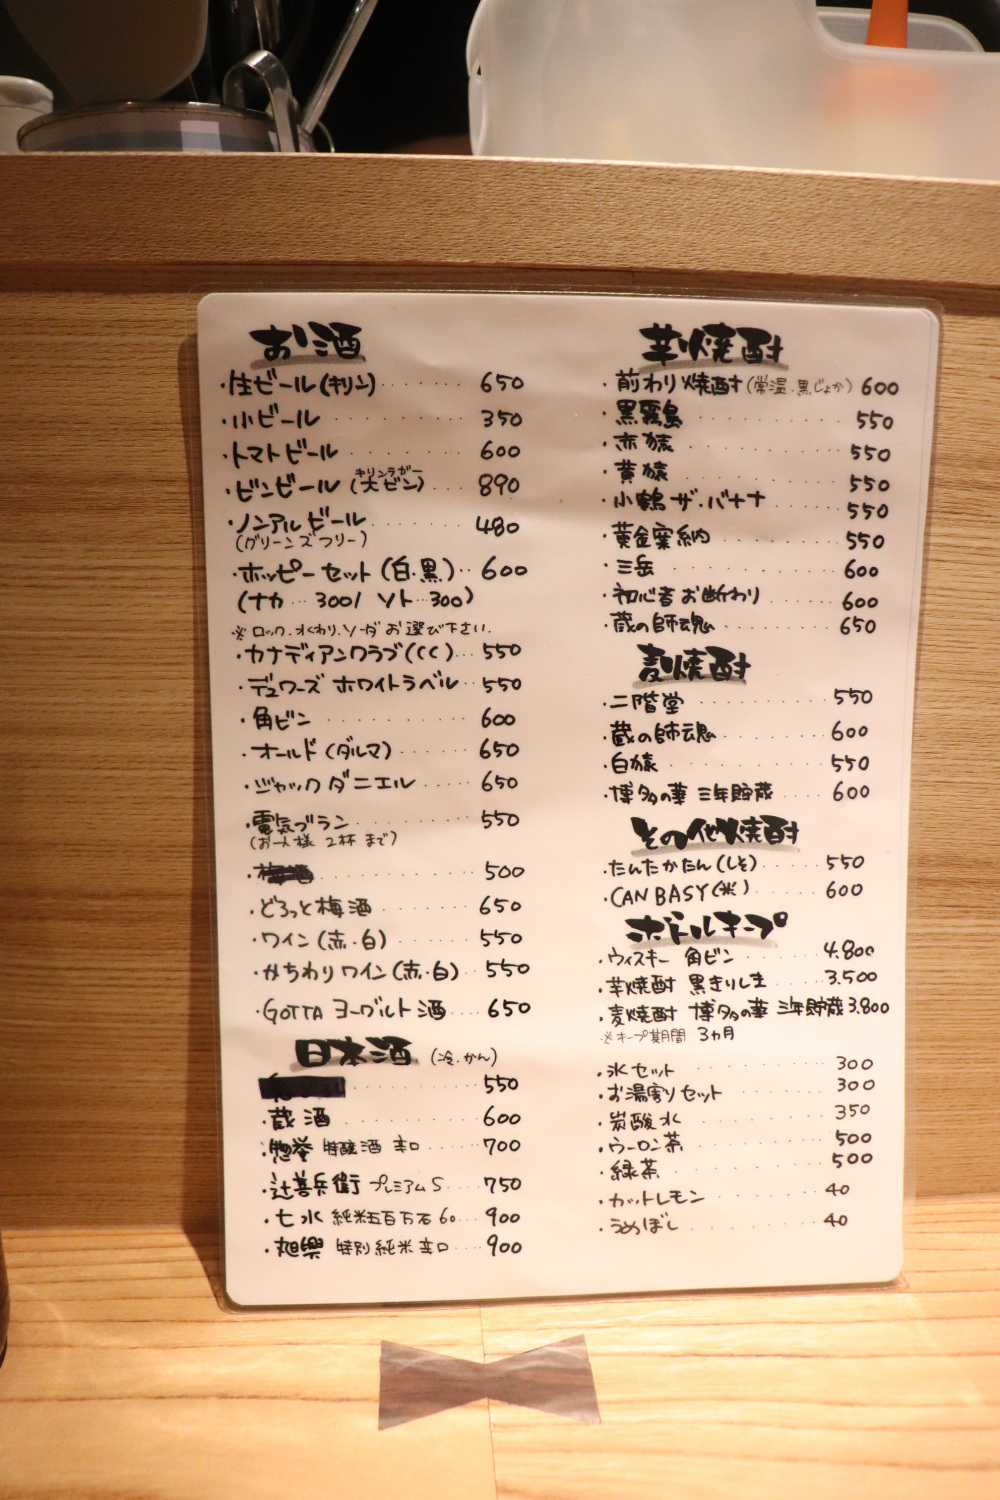 お酒
・生ビール(キリン)‥‥‥ 650
・小ビール ‥‥‥ 350
・トマトビール ‥‥‥ 600
・ビンビール (キリンラガー大ビン)‥ 890
・ノンアルビール ‥‥‥ 480
(グリーンズフリー)
・ホッピーセット(白・黒)‥ 600
(ナカ‥300/ソト‥300)
※ロック、水わり、ソーダお選び下さい。
・カナディアンクラブ(CC)‥ 550
・デュワーズ ホワイトラベル‥ 550
・角ビン ‥‥‥ 600
・オールド(ダルマ)‥‥‥ 650
・ジャックダニエル ‥‥‥ 650
・電気ブラン ‥‥‥ 550
(お一人様 2杯まで)
‥‥‥ 500
・どろっと梅酒 ‥‥‥ 650
・ワイン(赤・白)‥‥‥ 550
・かちわりワイン(赤・白)‥ 550
・GOTTA ヨーグルト酒 ‥ 650
日本酒 (冷・かん)
‥‥‥ 550
・蔵酒 ‥‥‥ 600
・惣誉 特醸酒 辛口 ‥‥ 700
・辻善兵衛 プレミアムS ‥ 750
・七水 純米五百万石60 ‥ 900
・旭興 特別純米 辛口 ‥ 900
芋焼酎
・前わり焼酎(常温・黒じょか) 600
・黒霧島 ‥‥‥ 550
・赤猿 ‥‥‥ 550
・黄猿 ‥‥‥ 550
・小鶴 ザ・バナナ ‥‥‥ 550
・黄金蜜納 ‥‥‥ 550
・三岳 ‥‥‥ 600
・初心者お断わり ‥‥‥ 600
・蔵の師魂 ‥‥‥ 650
麦焼酎
・二階堂 ‥‥‥ 550
・蔵の師魂 ‥‥‥ 600
・白猿 ‥‥‥ 550
・博多の華 三年貯蔵 ‥‥ 600
その他焼酎
・たんたかたん(しそ)‥‥ 550
・CAN BASY(米)‥‥ 600
ボトルキープ
・ウィスキー 角ビン ‥‥ 4.800
・芋焼酎 黒きりしま ‥‥ 3.500
・麦焼酎 博多の華 三年貯蔵 3.800
※キープ期間 3ヵ月
・氷セット ‥‥‥ 300
・お湯割りセット ‥‥‥ 300
・炭酸水 ‥‥‥ 350
・ウーロン茶 ‥‥‥ 500
・緑茶 ‥‥‥ 500
・カットレモン ‥‥‥ 40
・うめぼし ‥‥‥ 40